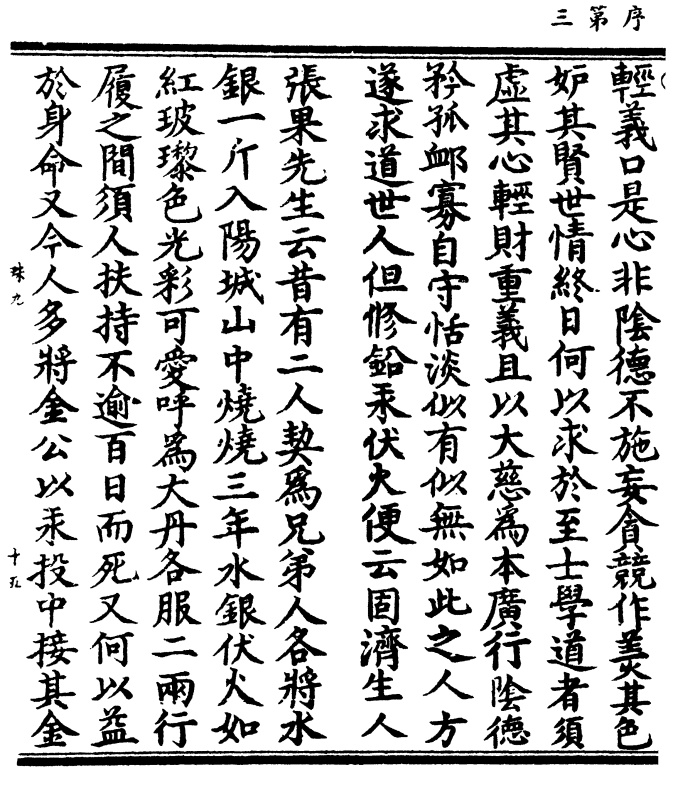 序第三
輕義口是心非陰德不施妄貪競作羨其色
妒其賢世情終日何以求於至士學道者須
虛其心輕財重義且以大慈為本廣行陰德
矜孤卹寡自守恬淡似有似無如此之人方
遂求道世人但修鉛汞伏火便云固濟生人
張果先生云昔有二人契為兄弟人各將水
銀一斤入陽城山中燒燒三年水銀伏火如
紅玻瓈色光彩可愛呼為大丹各服二兩行
履之間須人扶持不逾百日而死又何以益
於身命又今人多將金公以汞投中接其金
珠九
十五